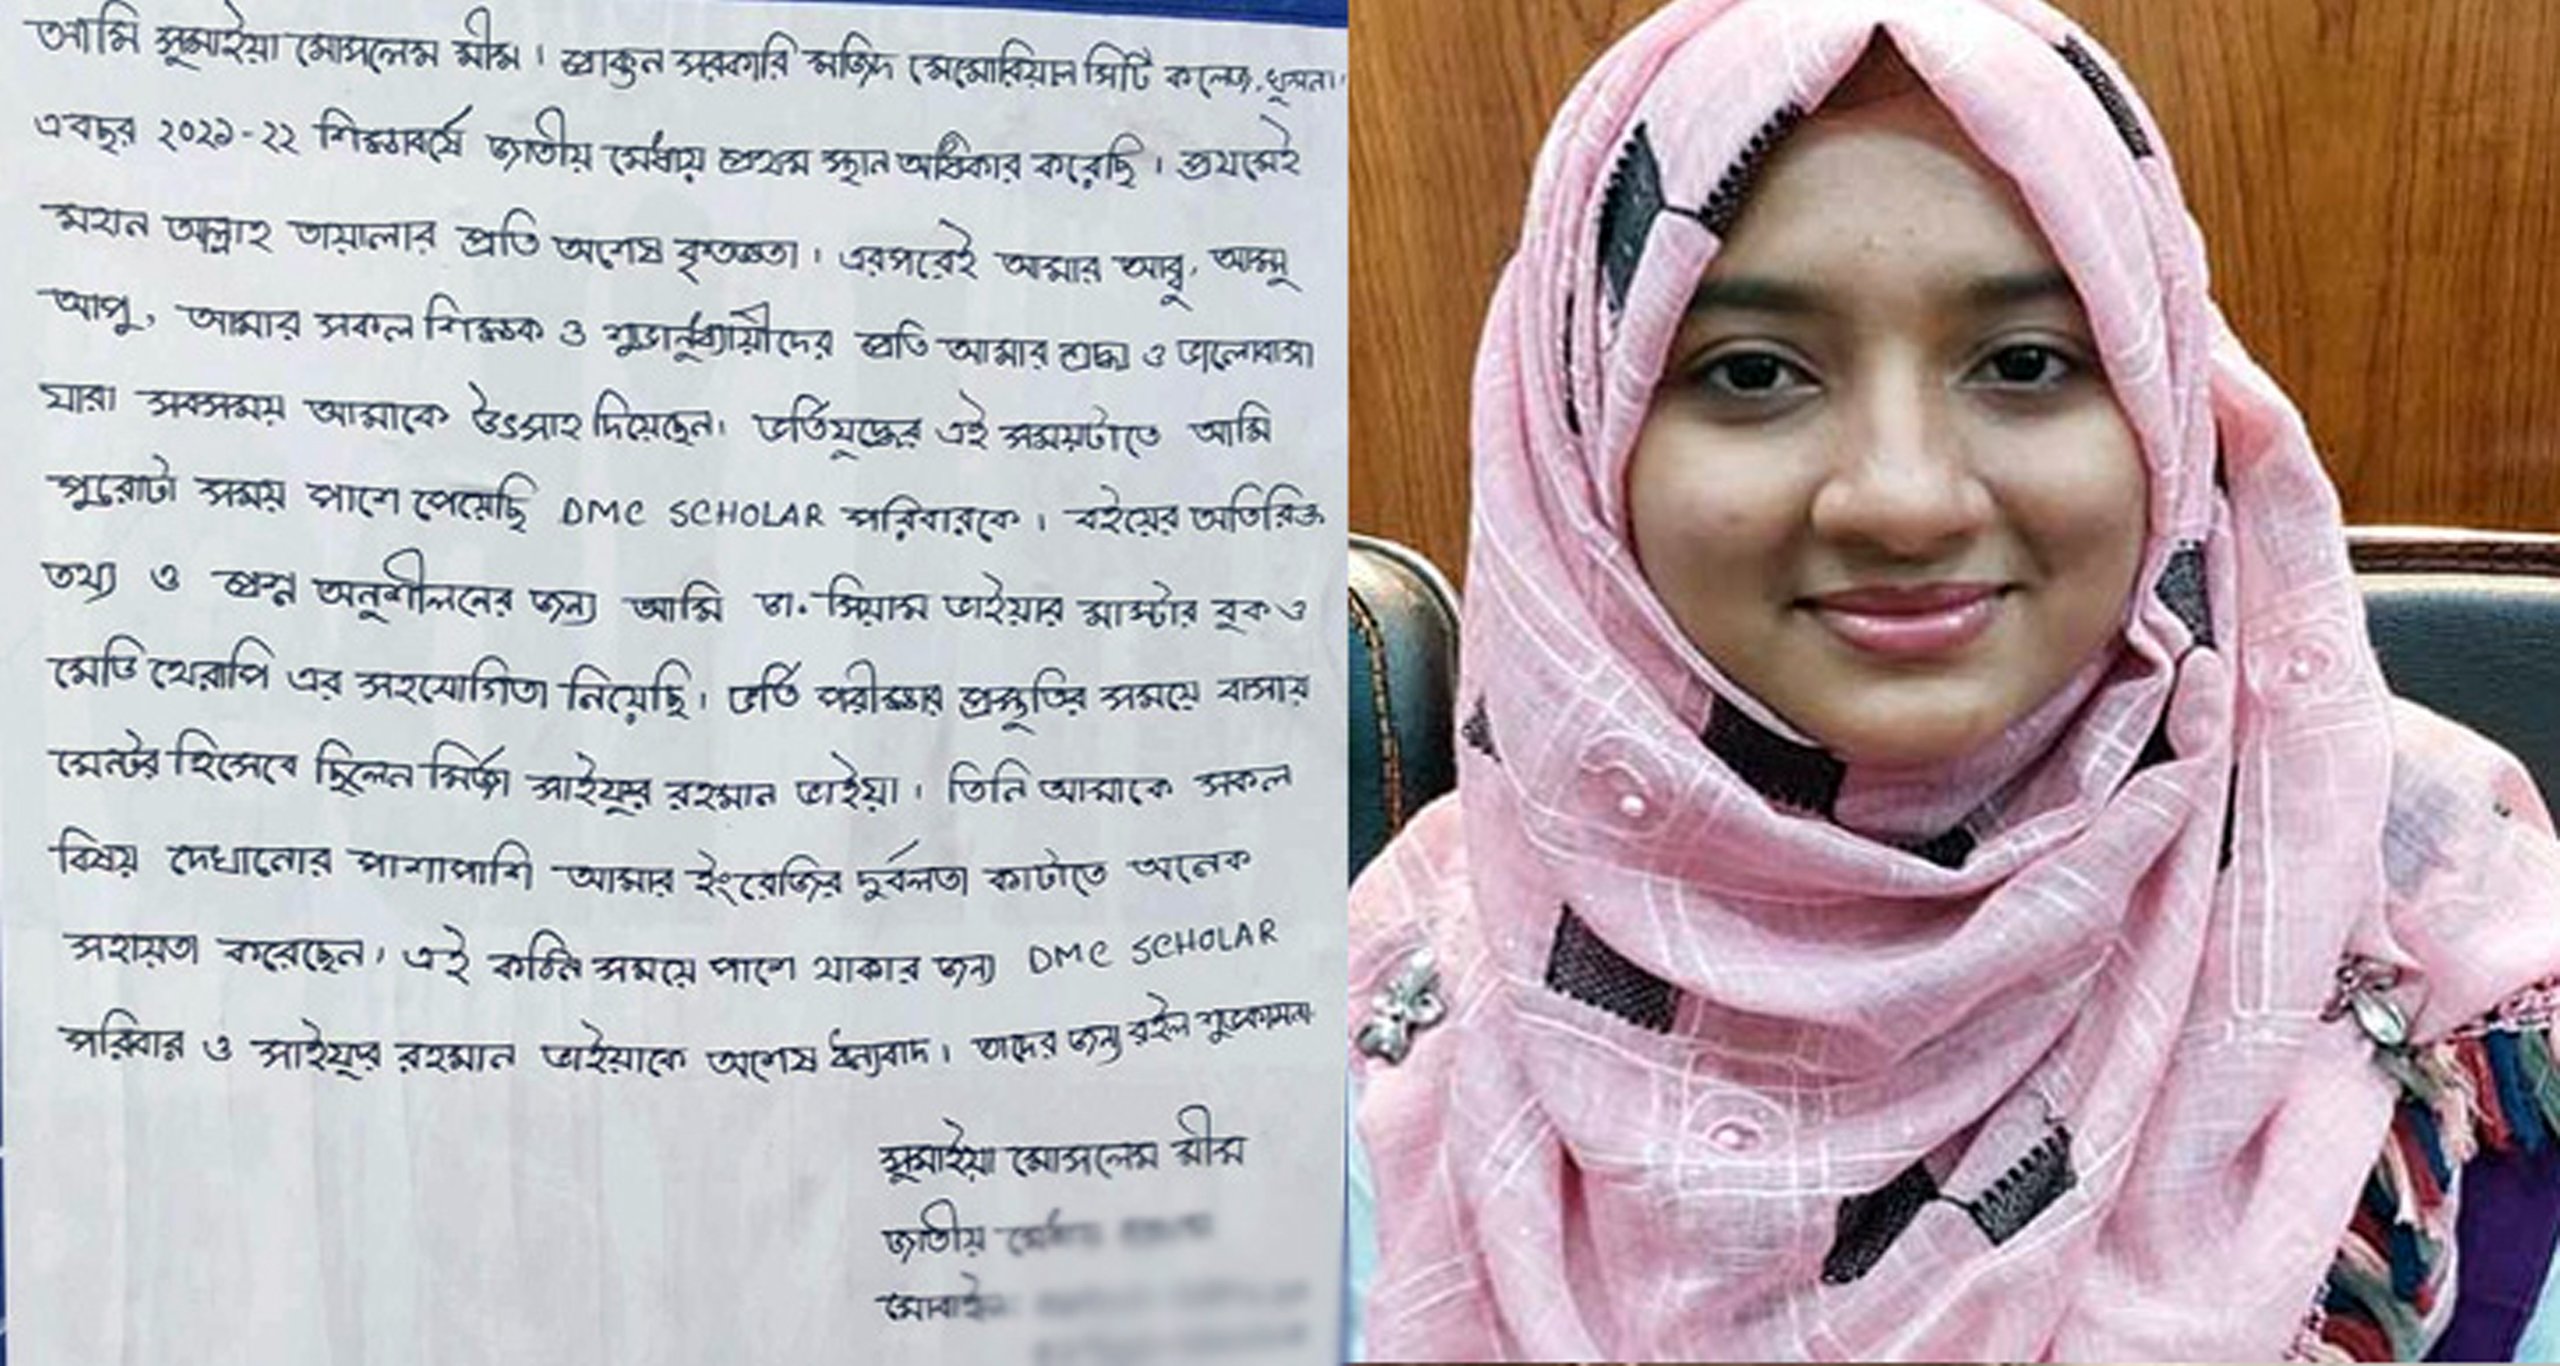 আমি সুমাইয়া মোসলেম মীম। প্রাক্তন সরকারি মজিদ মেমোরিয়াল সিটি কলেজ, খুলনা।
এবছর ২০২১-২২ শিক্ষাবর্ষে জাতীয় মেধায় প্রথম স্থান অধিকার করেছি। প্রথমেই
মহান আল্লাহ তায়ালার প্রতি অশেষ কৃতজ্ঞতা। এরপরেই আমার আব্বু, আম্মু
আপু, আমার সকল শিক্ষক ও শুভানুধ্যায়ীদের প্রতি আমার শ্রদ্ধা ও ভালোবাসা
যারা সবসময় আমাকে উৎসাহ দিয়েছেন। ভর্তিযুদ্ধের এই সময়টাতে আমি
পুরোটা সময় পাশে পেয়েছি DMC SCHOLAR পরিবারকে। বইয়ের অতিরিক্ত
তথ্য ও প্রশ্ন অনুশীলনের জন্য আমি ডা. সিয়াম ভাইয়ার মাস্টার বুক ও
মেডি থেরাপি এর সহযোগিতা নিয়েছি। ভর্তি পরীক্ষার প্রস্তুতির সময়ে বাসায়
মেন্টর হিসেবে ছিলেন মির্জা সাইফুর রহমান ভাইয়া। তিনি আমাকে সকল
বিষয় দেখানোর পাশাপাশি আমার ইংরেজির দুর্বলতা কাটাতে অনেক
সহায়তা করেছেন। এই কঠিন সময়ে পাশে থাকার জন্য DMC SCHOLAR
পরিবার ও সাইফুর রহমান ভাইয়াকে অশেষ ধন্যবাদ। তাদের জন্য রইল শুভকামনা
সুমাইয়া মোসলেম মীম
জাতীয়